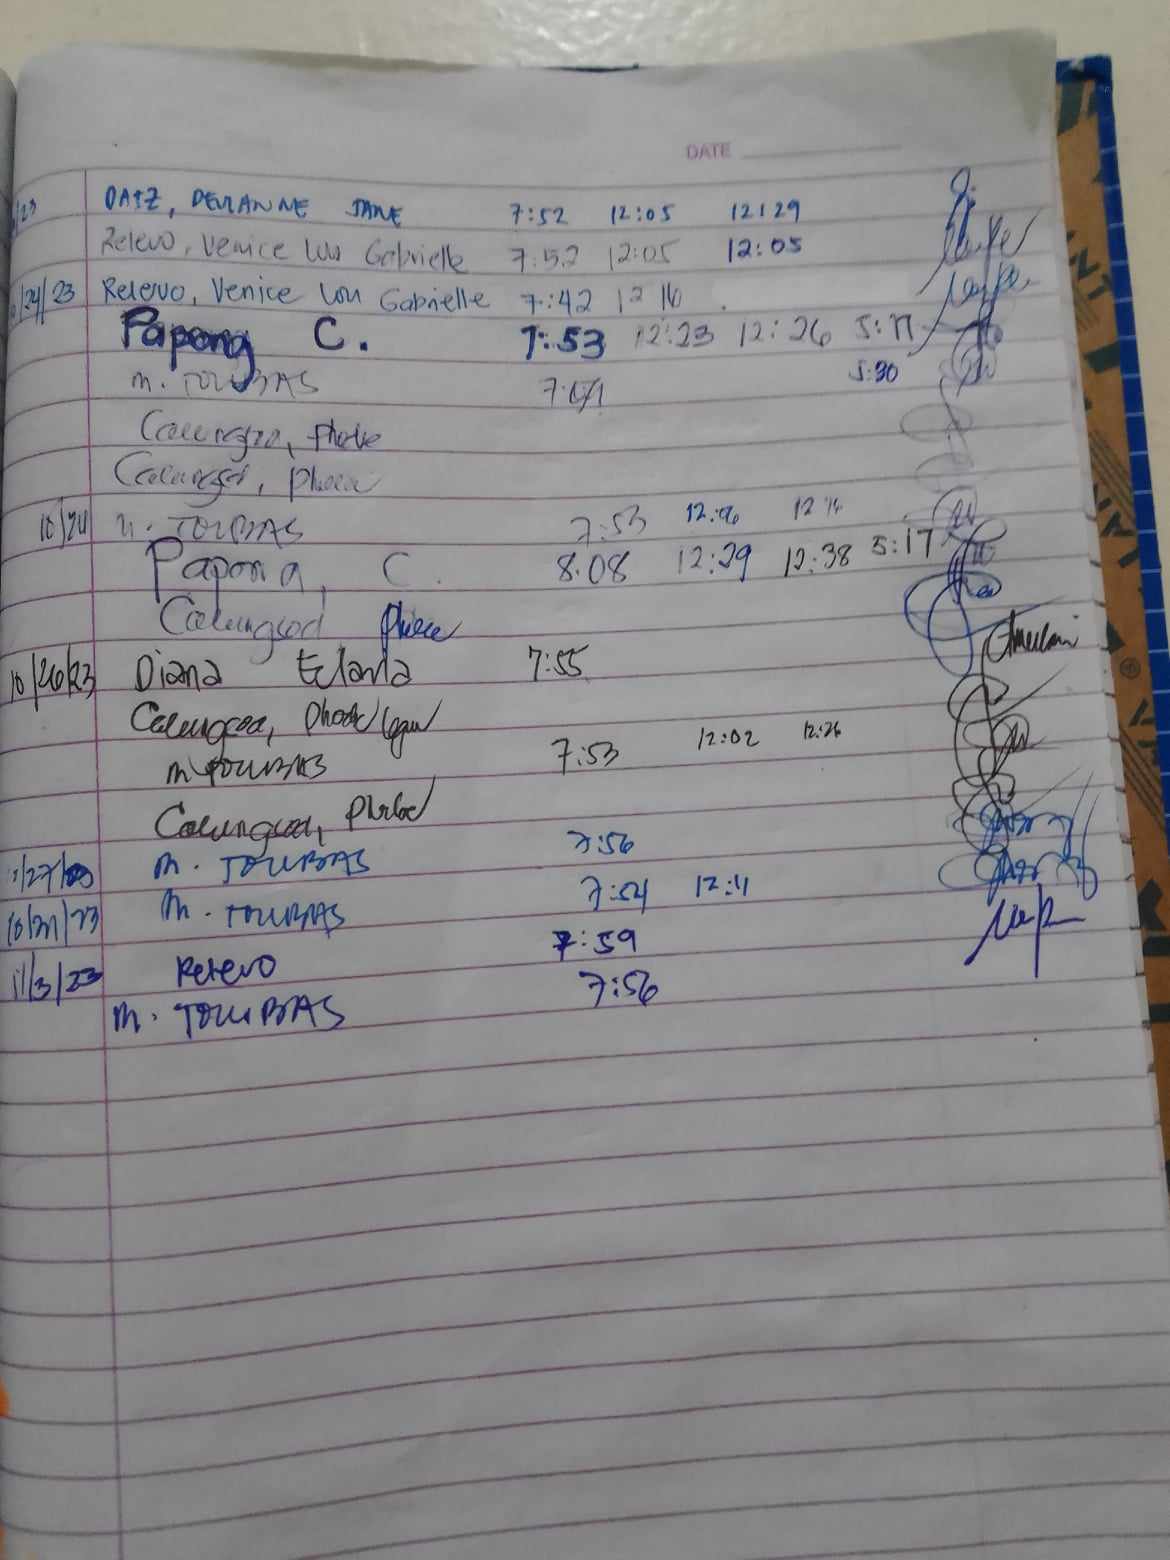 DATE
/23 DAIZ, DEVIANNE JANE 7:52 12:05 12:29
Relevo, Venice Lou Gabrielle 7:52 12:05 12:05
/24/23 Relevo, Venice Lou Gabrielle 7:42 12 16
Papong C. 7:53 12:23 12:26 5:17
M. TOLIBAS 5:30
Calungsod, Phoebe
Calungsod, Phoebe
10/24 M. TOLIBAS 7:53
Papong, C. 8:08 12:29 12:38 5:17
Calungsod Phoebe
10/26/23 Diana 7:55
Calungsod, Phoebe
M TOLIBAS 7:53 12:02 12:26
Calungsod, Phoebe
/27/ M. TOLIBAS 7:56
10/31/23 M. TOLIBAS 7:54 12:11
11/3/23 Relevo 7:59
M. TOLIBAS 7:56